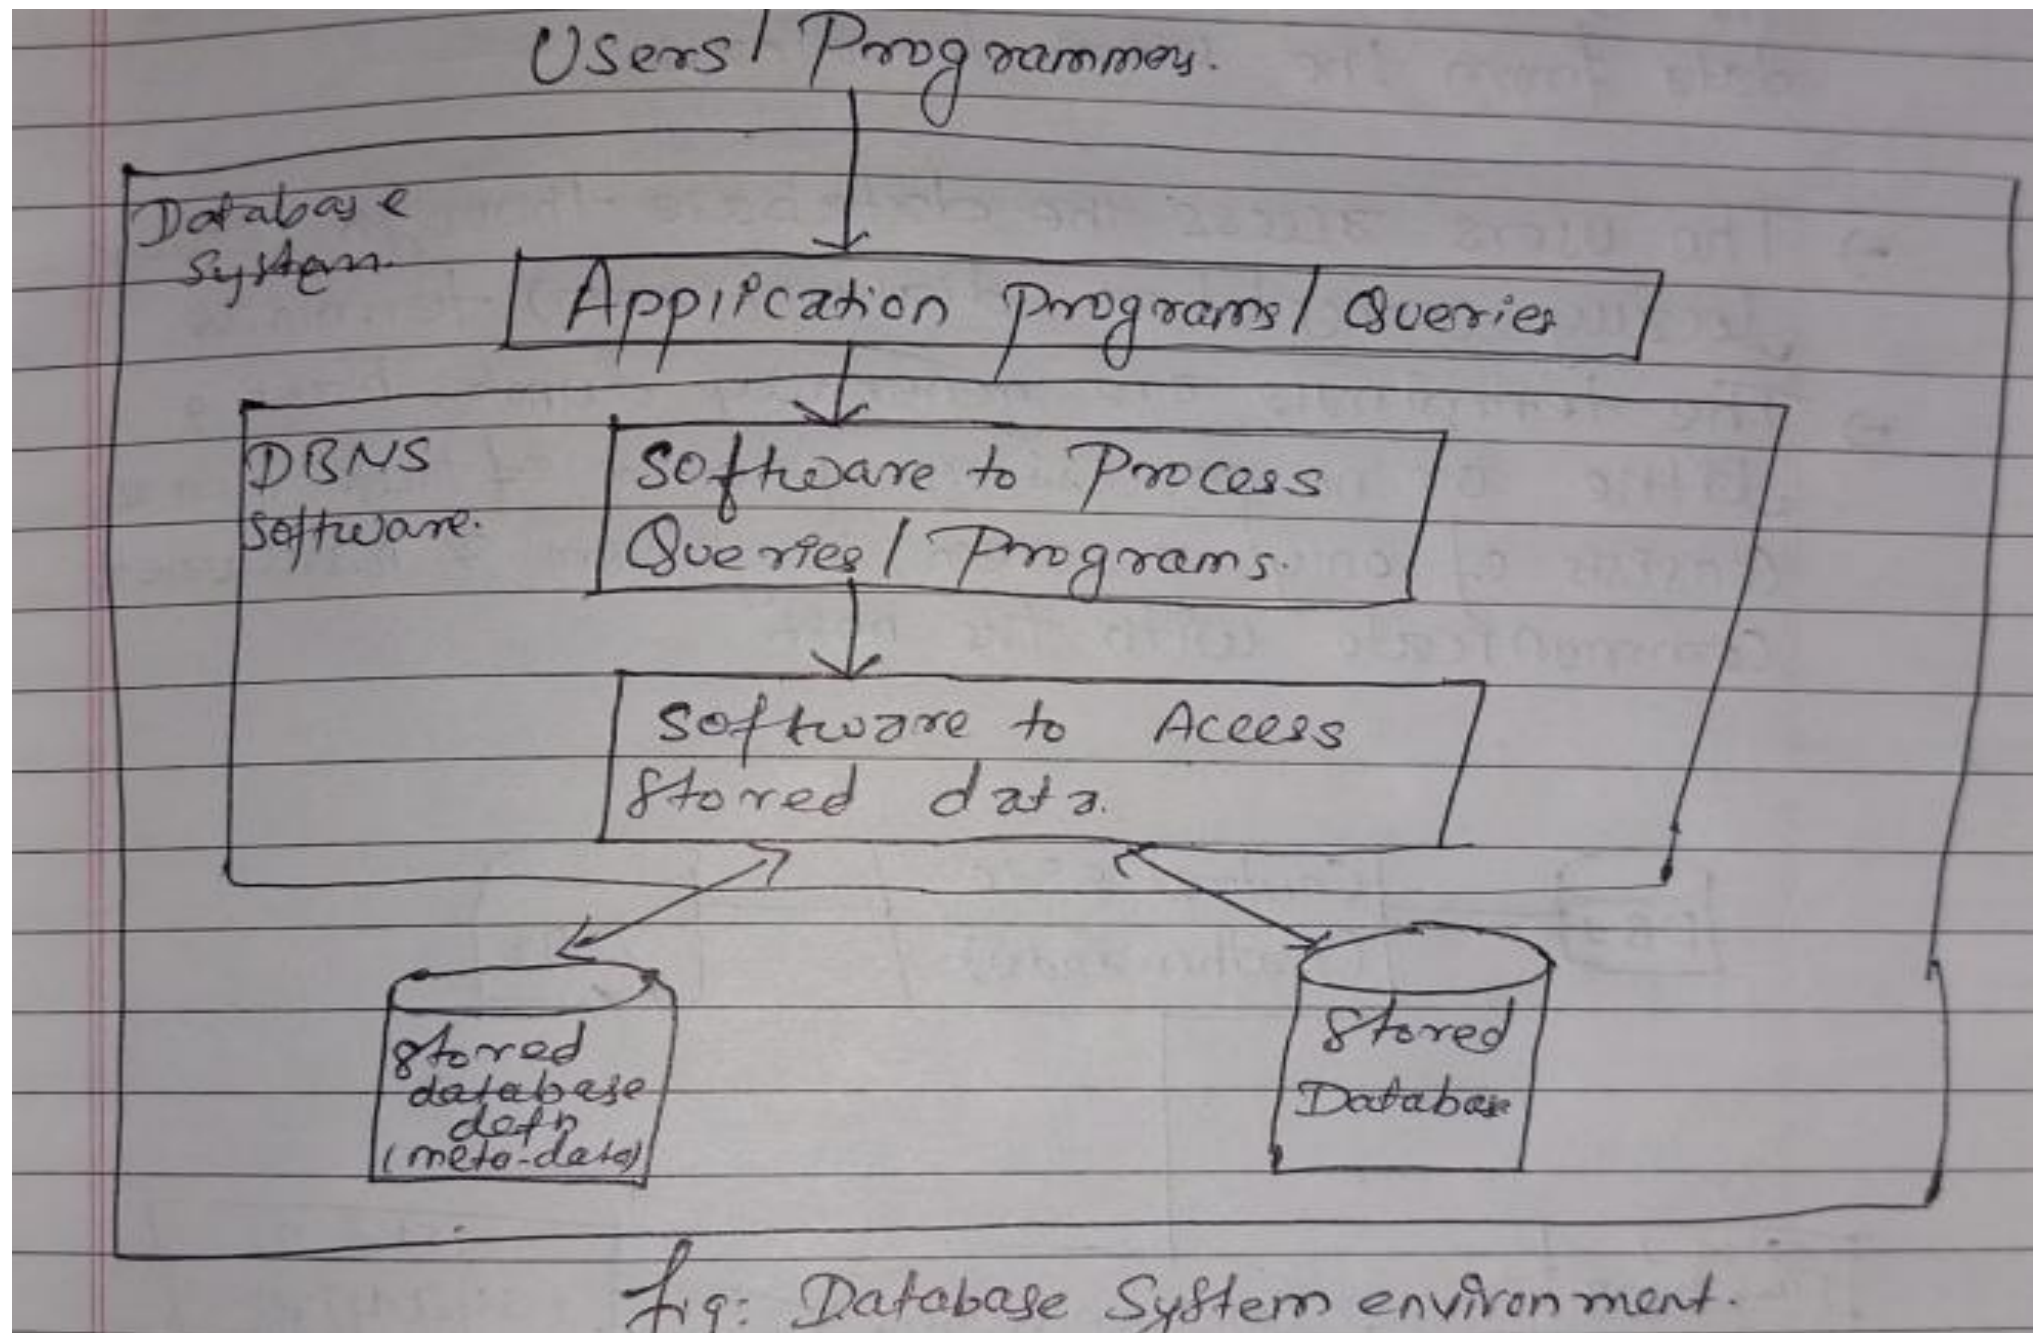 Users/Programmers.
Database
System.
Application Programs/Queries
DBMS
Software.
Software to Process
Queries/Programs.
Software to Access
Stored data.
Stored
database
defn
(meta-data)
Stored
Database
fig: Database System environment.